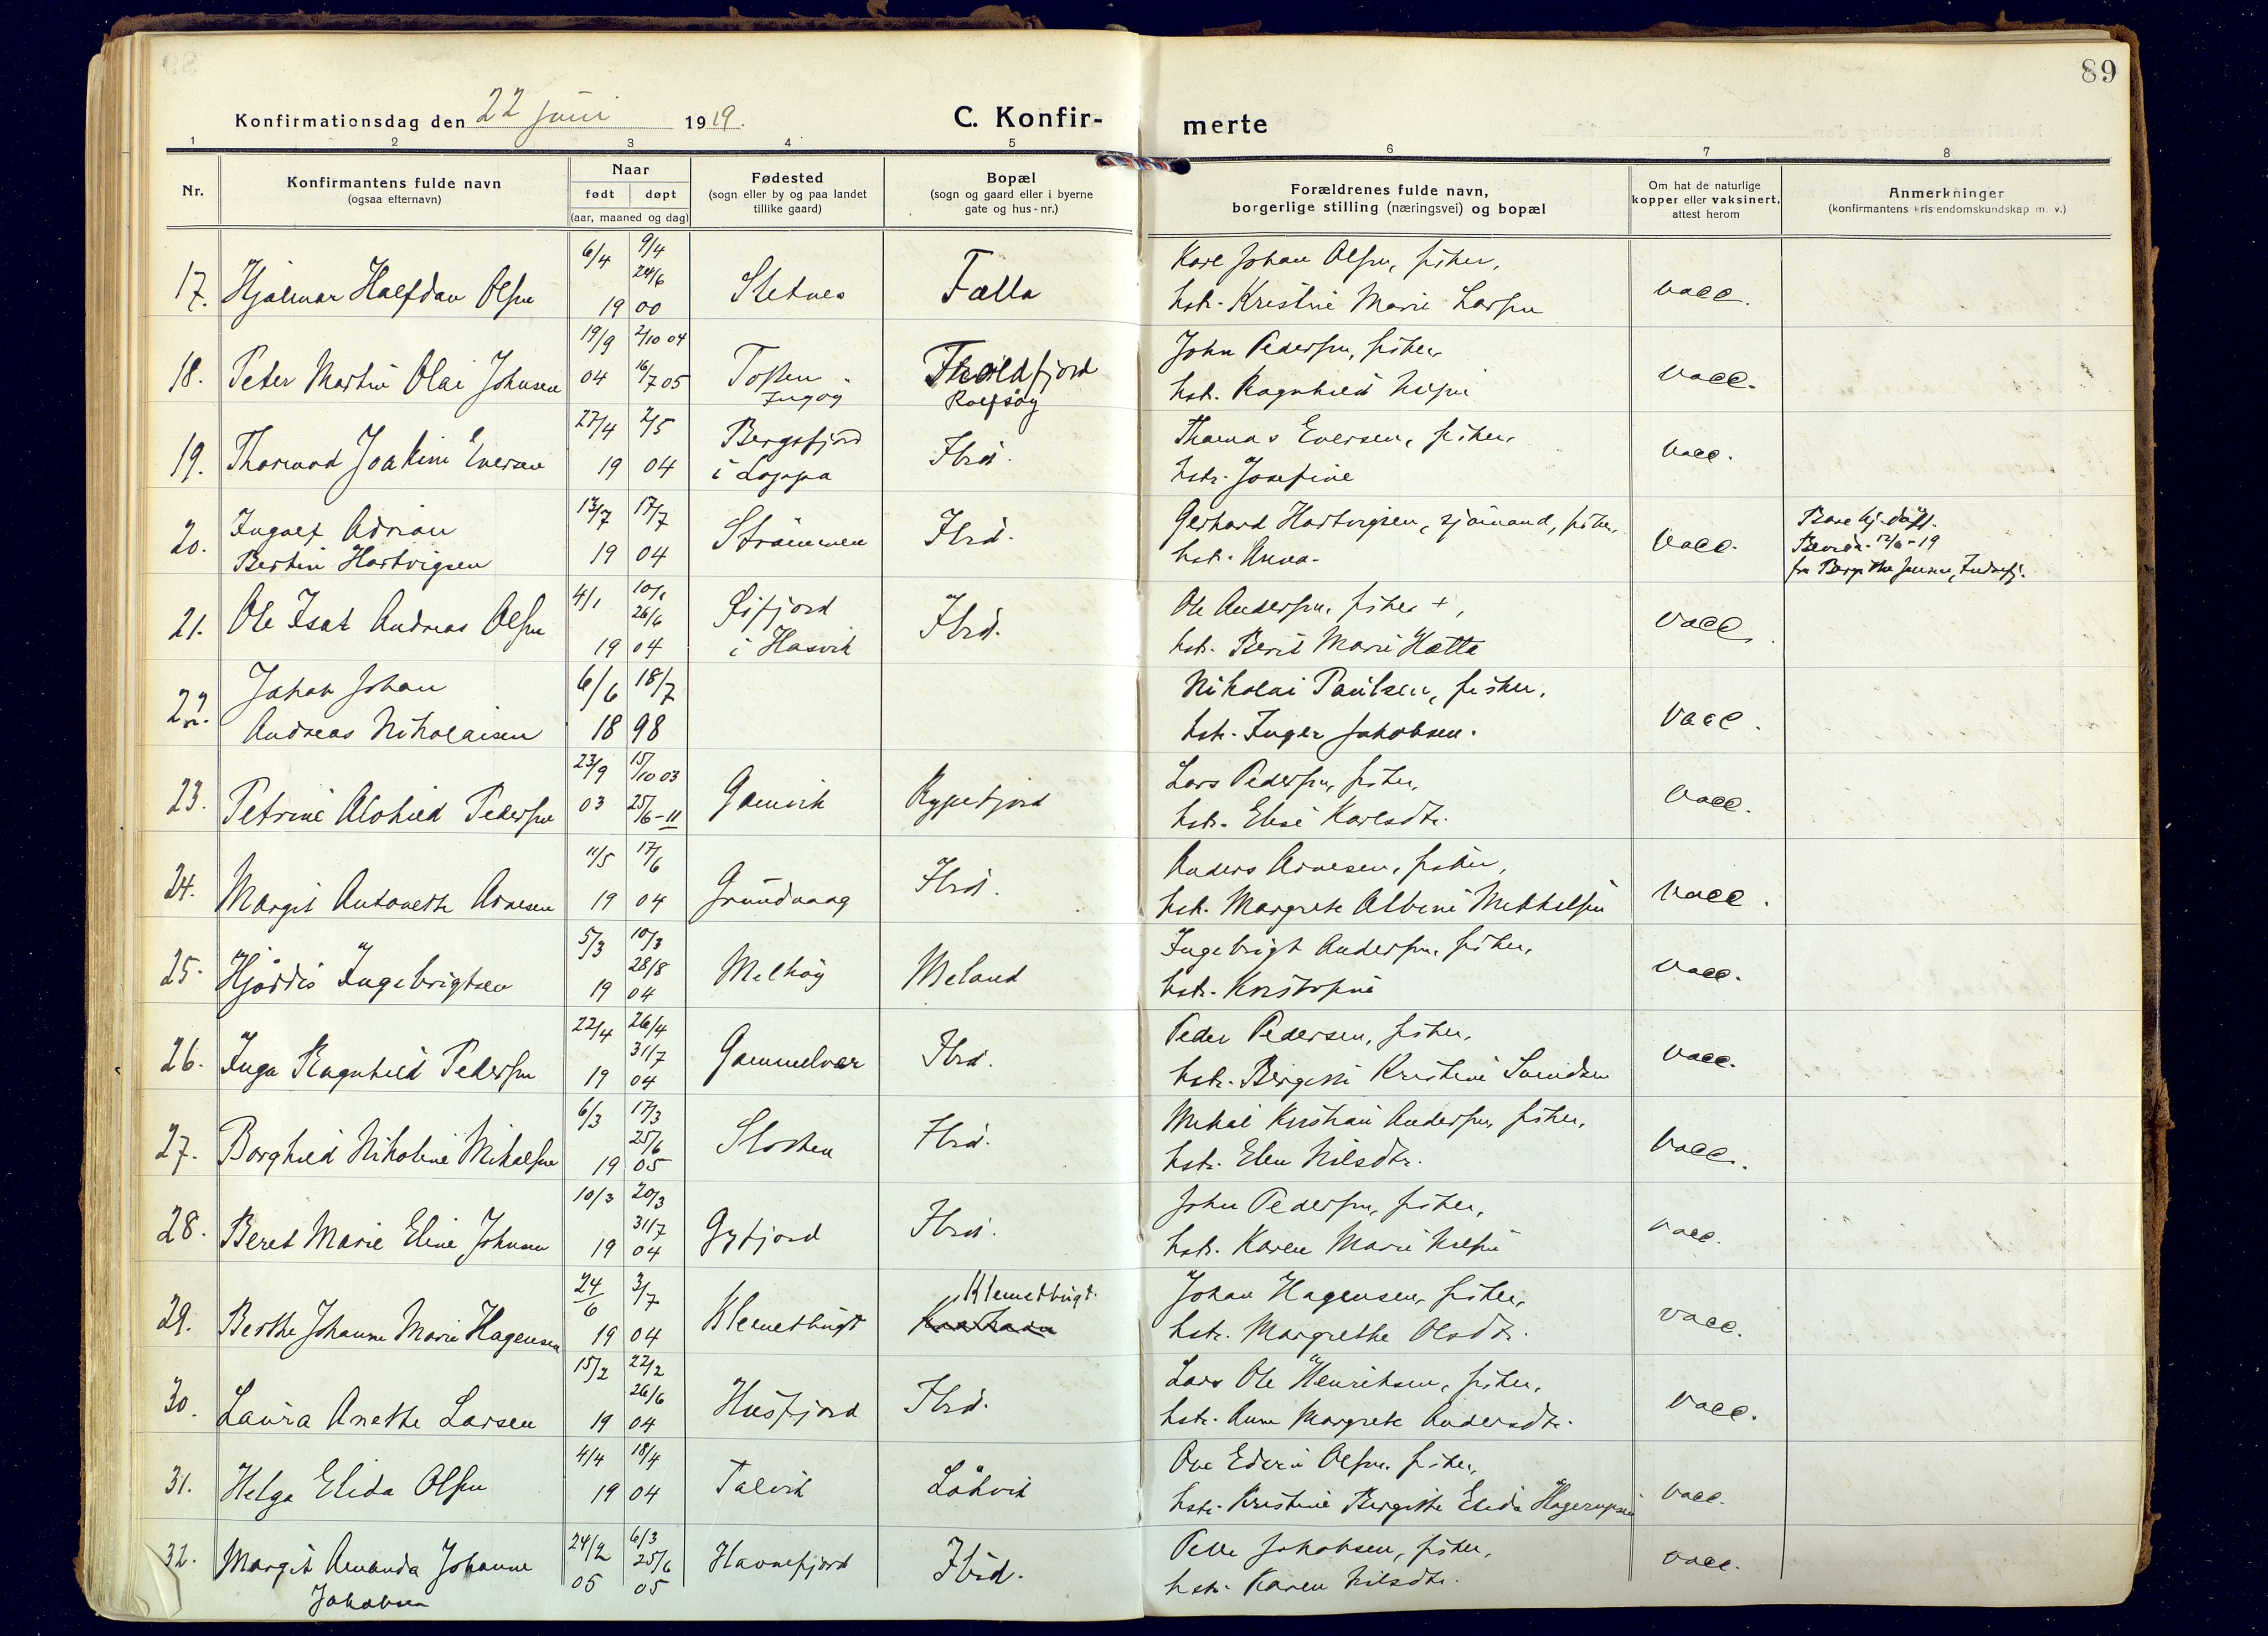 89
Konfirmationsdag den 22 juni 1919.
C. Konfir-
merte
1 2 3 4 5 6 7 8
Nr.
Konfirmantens fulde navn
(ogsaa efternavn)
Naar
født døpt
(aar, maaned og dag)
Fødested
(sogn eller by og paa landet
tillike gaard)
Bopæl
(sogn og gaard eller i byerne
gate og hus-nr.)
Forældrenes fulde navn,
borgerlige stilling (næringsvei) og bopæl
Om hat de naturlige
kopper eller vaksinert,
attest herom
Anmerkninger
(konfirmantens kristendomskundskap m. v.)
17. Hjalmar Halfdan Olsen 6/4 9/4 24/6 19 00 Sletnes Falla
Karl Johan Olsen, fisker,
hstr. Kristine Marie Larsen vacc.
18. Peter Martin Olai Johnsen 19/9 04 2/10 04 16/7 05 Tofsen Ingøy Troldfjord Rolfsøy
John Pedersen, fisker,
hstr. Ragnhild vacc.
19. Thorvard Joakim Eversen 27/4 2/5 19 04 Bergsfjord i Loppa Ibid.
Thomas Eversen, fisker,
hstr. Josefine vacc.
20. Ingolf Adrian
Bertin Hartvigsen 13/7 17/7 19 04 Strømmen Ibid.
Gerhard Hartvigsen, sjømand, fisker,
hstr. Anna. vacc.
Bare hj. døpt.
fra
21. Ole Isak Andreas Olsen 4/1 10/1 26/6 19 04 Sifjord i Hasvik Ibid.
Ole Andersen, fisker +,
hstr. Berit Marie Hætta vacc.
22. Jakob Johan
Andreas Nikolaisen 6/6 18/7 18 98
Nikolai Paulsen, fisker,
hstr. Inger Jakobsen. vacc.
23. Petrine Alvhild Pedersen 23/9 03 15/10 03 25/6-11 Gamvik Rypefjord
Lars Pedersen, fisker,
hstr. Elise Karlsdtr. vacc.
24. Margit Antonette Arnesen 11/5 17/6 19 04 Grundvaag Ibid.
Anders Arnesen, fisker,
hstr. Margrete Albine Mikkelsen vacc.
25. Hjørdis Ingebrigtsen 5/3 10/3 28/8 19 04 Melkøy Meland
Ingebrigt Andersen, fisker,
hstr. Kristofine vacc.
26. Inga Ragnhild Pedersen 22/4 26/4 31/7 19 04 Gammelvær Ibid.
Peder Pedersen, fisker,
hstr. Bergitte Kristine Svendsen vacc.
27. Borghild Nikoline Mikalsen 6/3 17/3 25/6 19 05 Slotten Ibid.
Mikal Kristian Andersen, fisker,
hstr. Elen Nilsdtr. vacc.
28. Beret Marie Eline Johnsen 10/3 20/3 31/7 19 04 Gyfjord Ibid.
John Pedersen, fisker,
hstr. Karen Marie vacc.
29. Berthe Johanne Marie Hagensen 24/6 3/7 19 04 Klemetbugt Klemetbugt.
Johan Hagensen, fisker,
hstr. Margrethe Olsdtr. vacc.
30. Laura Anette Larsen 15/2 22/2 26/6 19 04 Husfjord Ibid.
Lars Ole Henriksen, fisker,
hstr. Anne Margrete Andersdtr. vacc.
31. Helga Elida Olsen 4/4 18/4 19 04 Talvik Låkvik
Ove Edvin Olsen, fisker,
hstr. Kristine Bergitte Elida Hagerupsen vacc.
32. Margit Amanda Johanne
Jakobsen 24/2 05 6/3 25/6 05 Havnefjord Ibid.
Peder Jakobsen, fisker,
hstr. Karen Nilsdtr. vacc.